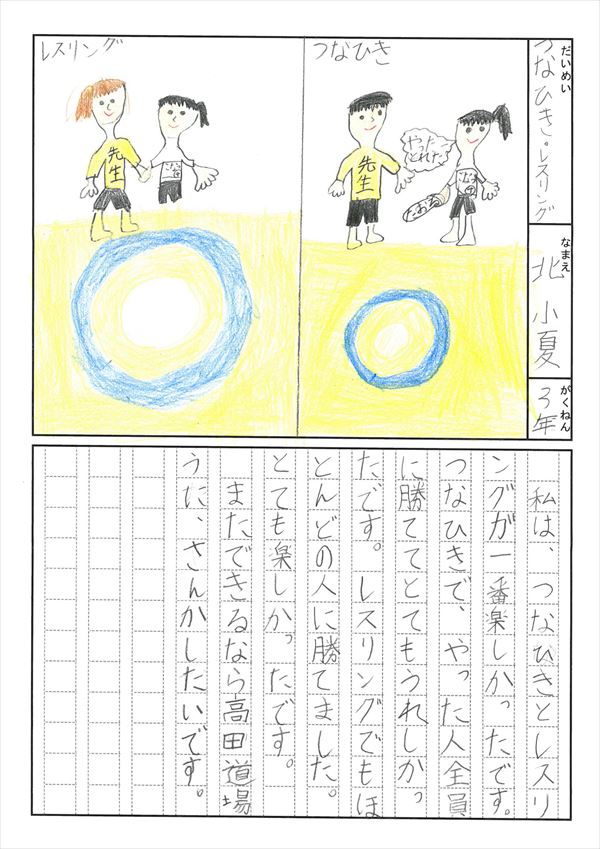 だいめい
つなひき・レスリング
なまえ
北 小夏
がくねん
3年
つなひき
やった
とれた
先生
たおる
レスリング
先生
私は、つなひきとレスリ
ングが一番楽しかったです。
つなひきで、やった人全員
に勝ててとてもうれしかっ
たです。レスリングでもほ
とんどの人に勝てました。
とても楽しかったです。
またできるなら高田道場
うに、さんかしたいです。